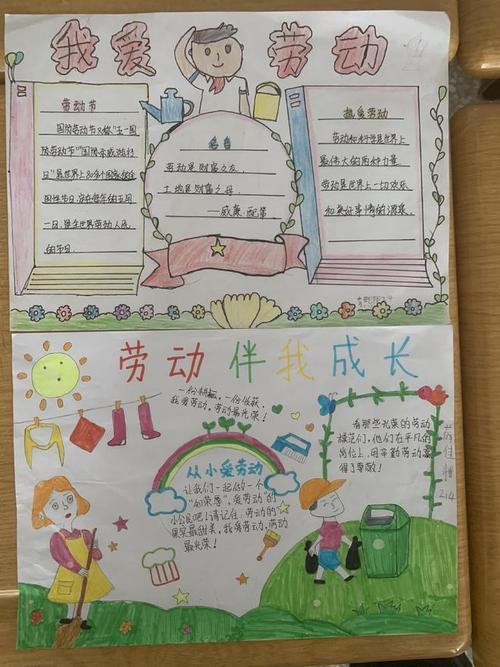 我爱劳动
劳动节
国际劳动节又称"五一国
际劳动节""国际示威游行
日"是世界上80多个国家的全
国性节日,定在每年的五月
一日,是全世界劳动人民
的节日.
名言
劳动是财富之父,
土地是财富之母.
——威廉·配第
热爱劳动
劳动和科学是世界上
最伟大的两种力量
劳动是世界上一切欢乐
和美好事情的源泉.
劳动伴我成长
一份耕耘,一份收获.
我爱劳动,劳动最光荣!
从小爱劳动
让我们一起做一个
"知荣辱",爱劳动"的
小公民吧!请记住:劳动的
果实最甜美,我爱劳动,劳动
最光荣!
看那些光荣的劳动
模范们,他们在平凡的
岗位上,用辛勤劳动赢
得了尊敬!
214